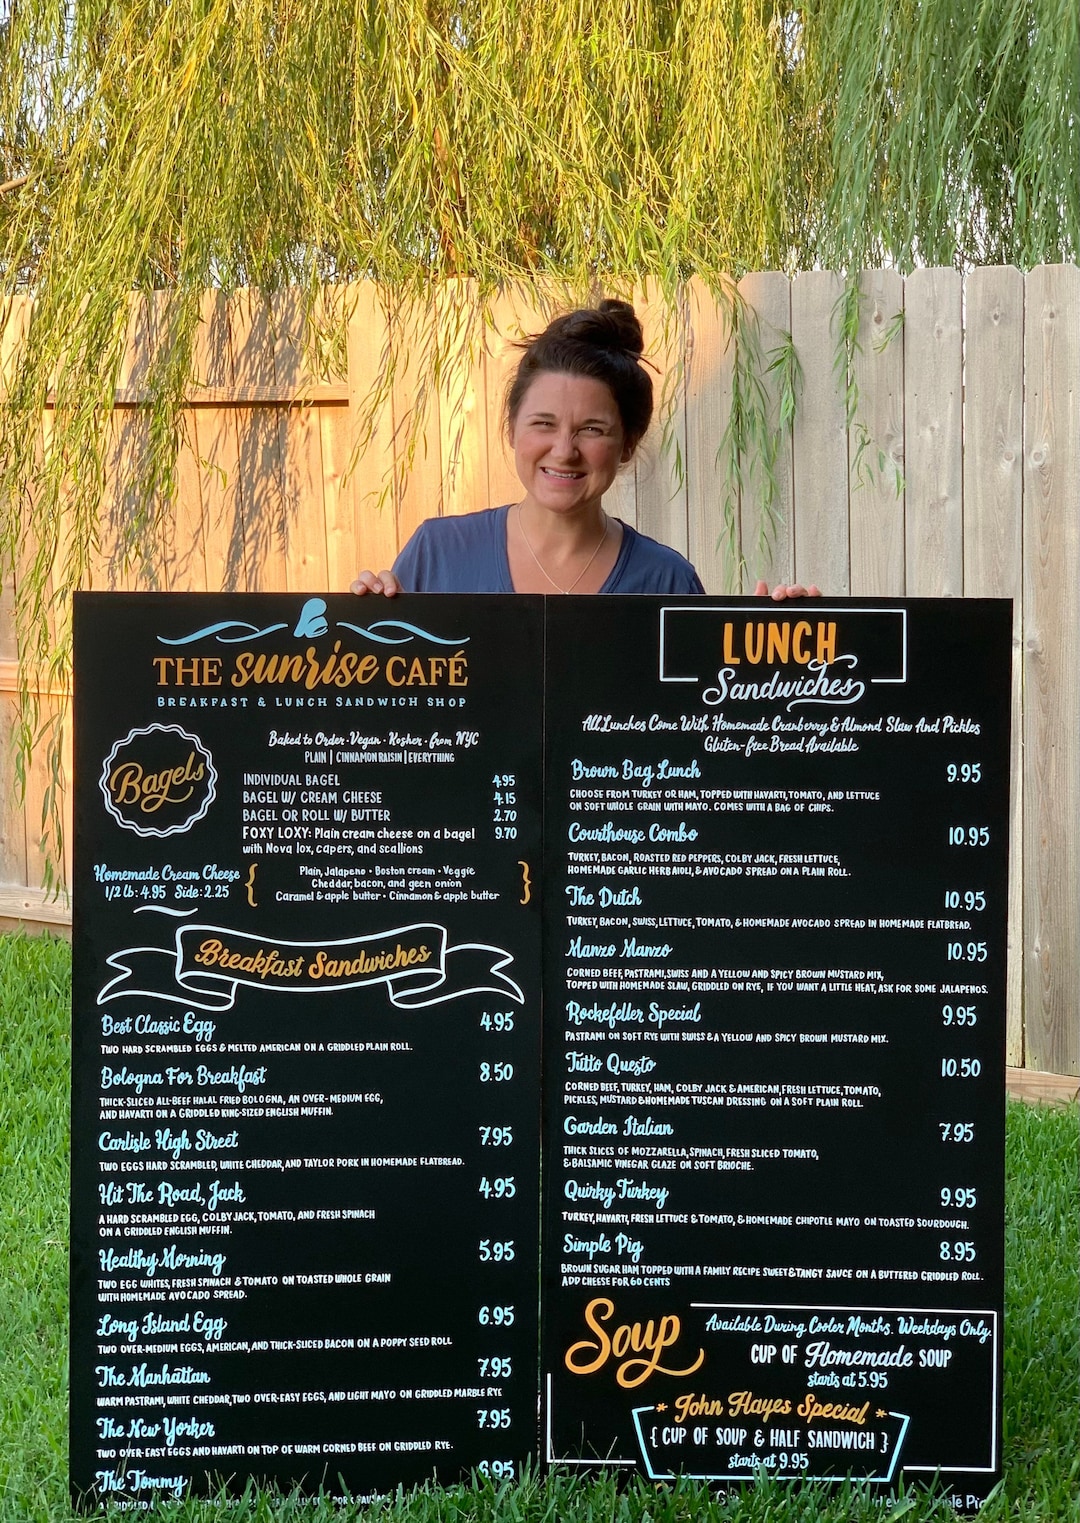 THE sunrise CAFÉ
BREAKFAST & LUNCH SANDWICH SHOP
Bagels
Baked to Order · Vegan · Kosher · from NYC
PLAIN | CINNAMON RAISIN | EVERYTHING
INDIVIDUAL BAGEL 4.95
BAGEL W/ CREAM CHEESE 4.15
BAGEL OR ROLL W/ BUTTER 2.70
FOXY LOXY: Plain cream cheese on a bagel 9.70
with Nova lox, capers, and scallions
Homemade Cream Cheese
1/2 lb: 4.95 Side: 2.25
{ Plain, Jalapeno · Boston cream · Veggie
Cheddar, bacon, and geen onion
Caramel & apple butter · Cinnamon & apple butter }
Breakfast Sandwiches
Best Classic Egg 4.95
TWO HARD SCRAMBLED EGGS & MELTED AMERICAN ON A GRIDDLED PLAIN ROLL.
Bologna For Breakfast 8.50
THICK-SLICED ALL-BEEF HALAL FRIED BOLOGNA, AN OVER-MEDIUM EGG,
AND HAVARTI ON A GRIDDLED KING-SIZED ENGLISH MUFFIN.
Carlisle High Street 7.95
TWO EGGS HARD SCRAMBLED, WHITE CHEDDAR, AND TAYLOR PORK IN HOMEMADE FLATBREAD.
Hit The Road, Jack 4.95
A HARD SCRAMBLED EGG, COLBY JACK, TOMATO, AND FRESH SPINACH
ON A GRIDDLED ENGLISH MUFFIN.
Healthy Morning 5.95
TWO EGG WHITES, FRESH SPINACH & TOMATO ON TOASTED WHOLE GRAIN
WITH HOMEMADE AVOCADO SPREAD.
Long Island Egg 6.95
TWO OVER-MEDIUM EGGS, AMERICAN, AND THICK-SLICED BACON ON A POPPY SEED ROLL
The Manhattan 7.95
WARM PASTRAMI, WHITE CHEDDAR, TWO OVER-EASY EGGS, AND LIGHT MAYO ON GRIDDLED MARBLE RYE
The New Yorker 7.95
TWO OVER-EASY EGGS AND HAVARTI ON TOP OF WARM CORNED BEEF ON GRIDDLED RYE.
The Tommy 6.95
A GRIDDLED PORK SAUSAGE
LUNCH
Sandwiches
All Lunches Come With Homemade Cranberry & Almond Slaw And Pickles
Gluten-free Bread Available
Brown Bag Lunch 9.95
CHOOSE FROM TURKEY OR HAM, TOPPED WITH HAVARTI, TOMATO, AND LETTUCE
ON SOFT WHOLE GRAIN WITH MAYO. COMES WITH A BAG OF CHIPS.
Courthouse Combo 10.95
TURKEY, BACON, ROASTED RED PEPPERS, COLBY JACK, FRESH LETTUCE,
HOMEMADE GARLIC HERB AIOLI, & AVOCADO SPREAD ON A PLAIN ROLL.
The Dutch 10.95
TURKEY, BACON, SWISS, LETTUCE, TOMATO, & HOMEMADE AVOCADO SPREAD IN HOMEMADE FLATBREAD.
Manzo Manzo 10.95
CORNED BEEF, PASTRAMI, SWISS AND A YELLOW AND SPICY BROWN MUSTARD MIX,
TOPPED WITH HOMEMADE SLAW, GRIDDLED ON RYE, IF YOU WANT A LITTLE HEAT, ASK FOR SOME JALAPENOS.
Rockefeller Special 9.95
PASTRAMI ON SOFT RYE WITH SWISS & A YELLOW AND SPICY BROWN MUSTARD MIX.
Tutto Questo 10.50
CORNED BEEF, TURKEY, HAM, COLBY JACK & AMERICAN, FRESH LETTUCE, TOMATO,
PICKLES, MUSTARD & HOMEMADE TUSCAN DRESSING ON A SOFT PLAIN ROLL.
Garden Italian 7.95
THICK SLICES OF MOZZARELLA, SPINACH, FRESH SLICED TOMATO,
& BALSAMIC VINEGAR GLAZE ON SOFT BRIOCHE.
Quirky Turkey 9.95
TURKEY, HAVARTI, FRESH LETTUCE & TOMATO, & HOMEMADE CHIPOTLE MAYO ON TOASTED SOURDOUGH.
Simple Pig 8.95
BROWN SUGAR HAM TOPPED WITH A FAMILY RECIPE SWEET & TANGY SAUCE ON A BUTTERED GRIDDLED ROLL.
ADD CHEESE FOR 60 CENTS
Soup
Available During Cooler Months. Weekdays Only.
CUP OF Homemade SOUP
starts at 5.95
* John Hayes Special *
{ CUP OF SOUP & HALF SANDWICH }
starts at 9.95